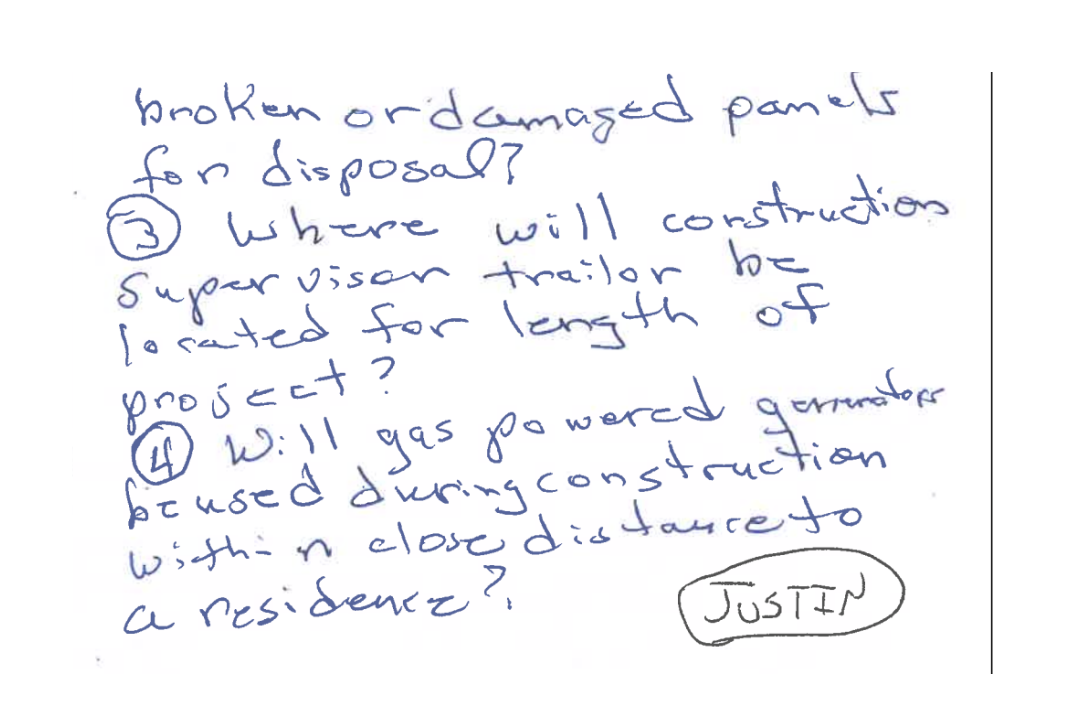 broken or damaged panels
for disposal?
③ Where will construction
Supervisor trailor be
located for length of
project?
④ Will gas powered generators
be used during construction
within close distance to
a residence?
JUSTIN